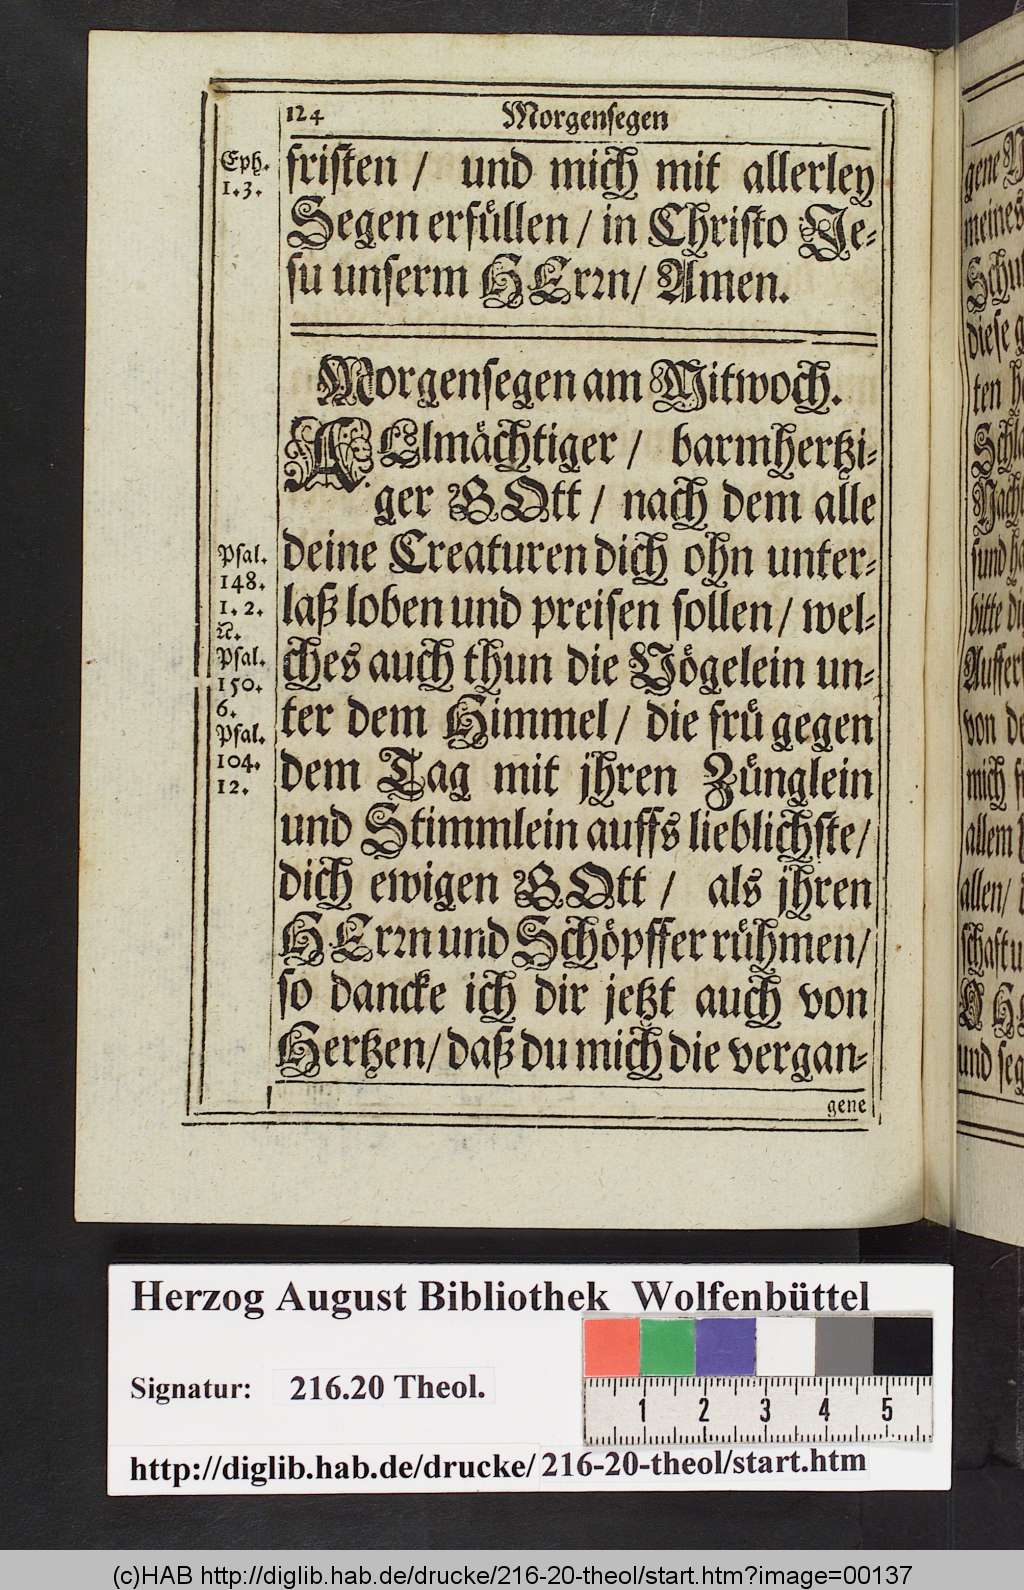 124 Morgensegen
Eph.
1.3.
fristen / und mich mit allerley
Segen erfüllen / in Christo Je⸗
su unserm HErꝛn / Amen.
Morgensegen am Mitwoch.
ALlmächtiger / barmhertzi⸗
ger GOtt / nach dem alle
deine Creaturen dich ohn unter⸗
laß loben und preisen sollen / wel⸗
ches auch thun die Vögelein un⸗
ter dem Himmel / die frü gegen
dem Tag mit jhren Zünglein
und Stimmlein auffs lieblichste /
dich ewigen GOtt / als jhren
HErꝛn und Schöpffer rühmen /
so dancke ich dir jetzt auch von
Hertzen / daß du mich die vergan⸗
gene
Psal.
148.
1. 2.
Psal.
150.
6.
Psal.
104.
12.
meines
diese g
bitte di
von de
mich f
allem
allen /
und seg
Herzog August Bibliothek Wolfenbüttel
Signatur: 216.20 Theol.
1 2 3 4 5
http://diglib.hab.de/drucke/216-20-theol/start.htm
(c)HAB http://diglib.hab.de/drucke/216-20-theol/start.htm?image=00137